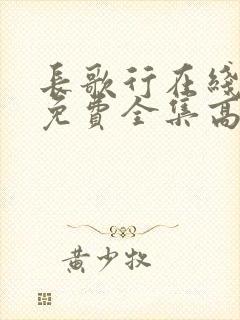 長歌行在綫
免費全集高
黃少牧